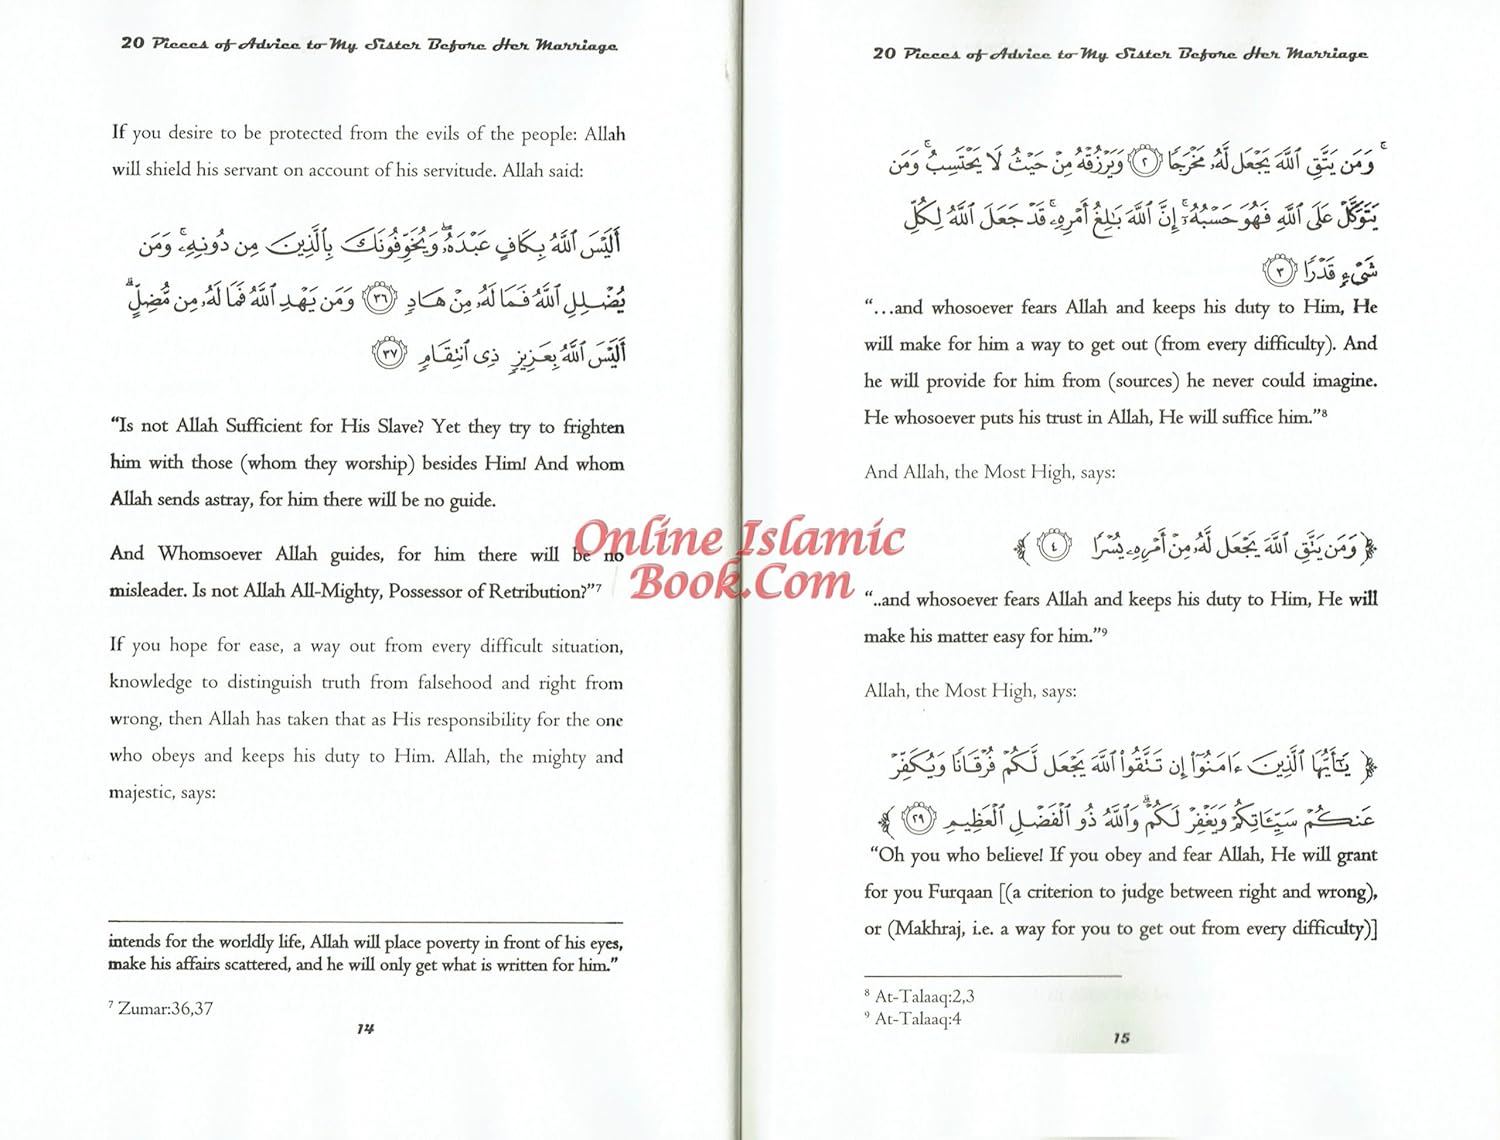 20 Pieces of Advice to My Sister Before Her Marriage
If you desire to be protected from the evils of the people: Allah
will shield his servant on account of his servitude. Allah said:
أَلَيْسَ ٱللَّهُ بِكَافٍ عَبْدَهُۥ ۖ وَيُخَوِّفُونَكَ بِٱلَّذِينَ مِن دُونِهِۦ ۚ وَمَن
يُضْلِلِ ٱللَّهُ فَمَا لَهُۥ مِنْ هَادٍ ٣٦ وَمَن يَهْدِ ٱللَّهُ فَمَا لَهُۥ مِن مُّضِلٍّ ۗ
أَلَيْسَ ٱللَّهُ بِعَزِيزٍ ذِى ٱنتِقَامٍ ٣٧
“Is not Allah Sufficient for His Slave? Yet they try to frighten
him with those (whom they worship) besides Him! And whom
Allah sends astray, for him there will be no guide.
And Whomsoever Allah guides, for him there will be no
misleader. Is not Allah All-Mighty, Possessor of Retribution?”⁷
If you hope for ease, a way out from every difficult situation,
knowledge to distinguish truth from falsehood and right from
wrong, then Allah has taken that as His responsibility for the one
who obeys and keeps his duty to Him. Allah, the mighty and
majestic, says:
intends for the worldly life, Allah will place poverty in front of his eyes,
make his affairs scattered, and he will only get what is written for him.”
⁷ Zumar:36,37
14
20 Pieces of Advice to My Sister Before Her Marriage
ۚ وَمَن يَتَّقِ ٱللَّهَ يَجْعَل لَّهُۥ مَخْرَجًا ٢ وَيَرْزُقْهُ مِنْ حَيْثُ لَا يَحْتَسِبُ ۚ وَمَن
يَتَوَكَّلْ عَلَى ٱللَّهِ فَهُوَ حَسْبُهُۥٓ ۚ إِنَّ ٱللَّهَ بَٰلِغُ أَمْرِهِۦ ۚ قَدْ جَعَلَ ٱللَّهُ لِكُلِّ
شَىْءٍ قَدْرًا ٣
“…and whosoever fears Allah and keeps his duty to Him, He
will make for him a way to get out (from every difficulty). And
he will provide for him from (sources) he never could imagine.
He whosoever puts his trust in Allah, He will suffice him.”⁸
And Allah, the Most High, says:
﴿ وَمَن يَتَّقِ ٱللَّهَ يَجْعَل لَّهُۥ مِنْ أَمْرِهِۦ يُسْرًا ٤ ﴾
“..and whosoever fears Allah and keeps his duty to Him, He will
make his matter easy for him.”⁹
Allah, the Most High, says:
﴿ يَٰٓأَيُّهَا ٱلَّذِينَ ءَامَنُوٓا۟ إِن تَتَّقُوا۟ ٱللَّهَ يَجْعَل لَّكُمْ فُرْقَانًا وَيُكَفِّرْ
عَنكُمْ سَيِّـَٔاتِكُمْ وَيَغْفِرْ لَكُمْ ۗ وَٱللَّهُ ذُو ٱلْفَضْلِ ٱلْعَظِيمِ ٢٩ ﴾
“Oh you who believe! If you obey and fear Allah, He will grant
for you Furqaan [(a criterion to judge between right and wrong),
or (Makhraj, i.e. a way for you to get out from every difficulty)]
⁸ At-Talaaq:2,3
⁹ At-Talaaq:4
15
Online Islamic
Book.Com